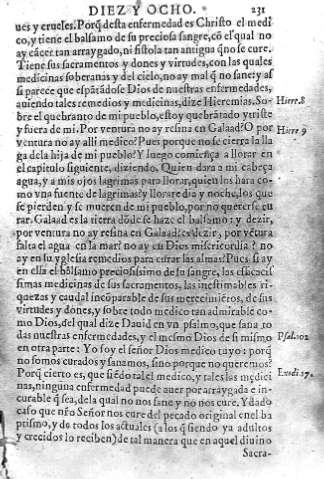 DIEZ Y OCHO. 231
ues y crueles. Porq̃ desta enfermedad es Christo el medi
co, y tiene el balsamo de su preciosa sangre, cõ el qual no
ay cácer tan arraygado, ni fistola tan antigua q̃ no se cure.
Tiene sus sacramentos y dones y virtudes, con las quales
medicinas soberanas y del cielo, no ay mal q̃ no sane: y assi
si parece que espãtãdose Dios de nuestras enfermedades,
auiendo tales remedios y medicinas, dize Hieremias, So-
bre el quebranto de mi pueblo, estoy quebrãtado y triste
y fuera de mi. Por ventura no ay resina en Galaad? O por
ventura no ay alli medico? Pues porque no se cierra la lla
ga de la hija de mi pueblo? Y luego comiença a llorar en
el capitulo siguiente, diziendo, Quien dara a mi cabeça
agua, y a mis ojos lagrimas para llorar, quien los hara co-
mo vna fuente de lagrimas? y llorare dia y noche, los que
se pierden y se mueren de mi pueblo, por no quererse cu
rar. Galaad es la tierra dõde se haze el balsamo: y dezir,
por ventura no ay resina en Galaad? es dezir, por vẽtura
falta el agua en la mar? no ay en Dios misericordia? no
ay en su yglesia remedios para curar las almas? Pues si ay
en ella el balsamo preciosissimo de su sangre, las eficacis
simas medicinas de sus sacramentos, las inestimables ri-
quezas y caudal incõparable de sus merecimiẽtos, de sus
virtudes y dones, y sobre todo medico tan admirable co-
mo Dios, del qual dize Dauid en vn psalmo, que sana to
das nuestras enfermedades, y el mesmo Dios de si mismo
en otra parte: Yo soy el señor Dios medico tuyo: porq̃
no somos curados y sanamos, sino porque no queremos?
Porq̃ cierto es, que siẽdo tal el medico, y tales las medici
nas, ninguna enfermedad puede auer por arraygada e in-
curable q̃ sea, de la qual no nos sane y no nos cure. Y dado
caso que nr̃o Señor nos cure del pecado original en el ba
ptismo, y de todos los actuales (a los q̃ siendo ya adultos
y crecidos lo reciben) de tal manera que en aquel diuino
Sacra-
Hiere. 8
Hiere 9
Psal. 102
Exodi